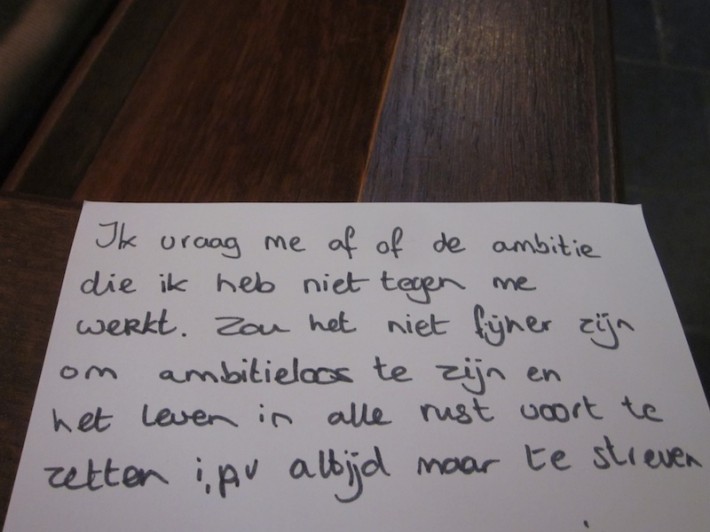 Ik vraag me af of de ambitie
die ik heb niet tegen me
werkt. Zou het niet fijner zijn
om ambitieloos te zijn en
het leven in alle rust voort te
zetten i.p.v altijd maar te streven